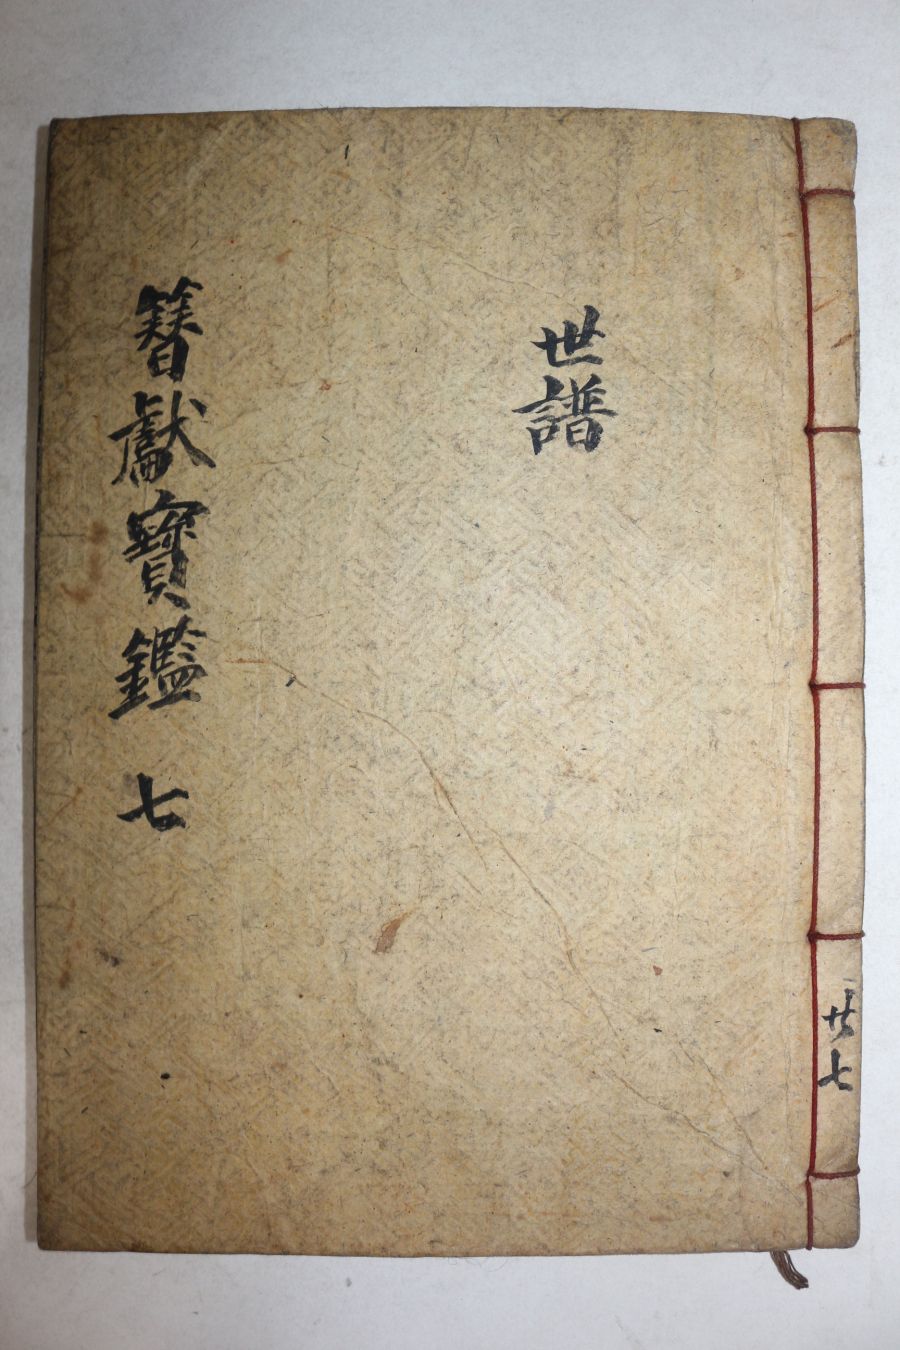 共七
世譜
簪獻寶鑑 七